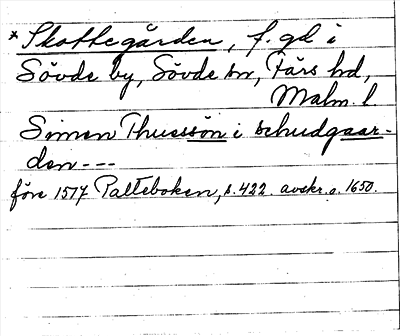 *Skottegården, f. gd i
Sövde by, Sövde sn, Färs hd,
Malm. l
Simen Thuesson i schudgaar-
den ---
före 1517 Palteboken, s. 422. avskr. o. 1650.